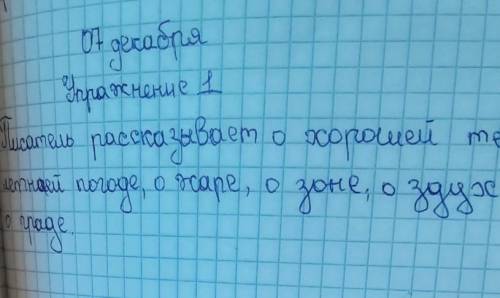 07 декабря
Упражнение 1
Писатель рассказывает о хорошей те
летней погоде, о жаре, о зоне, о здух
о граде.